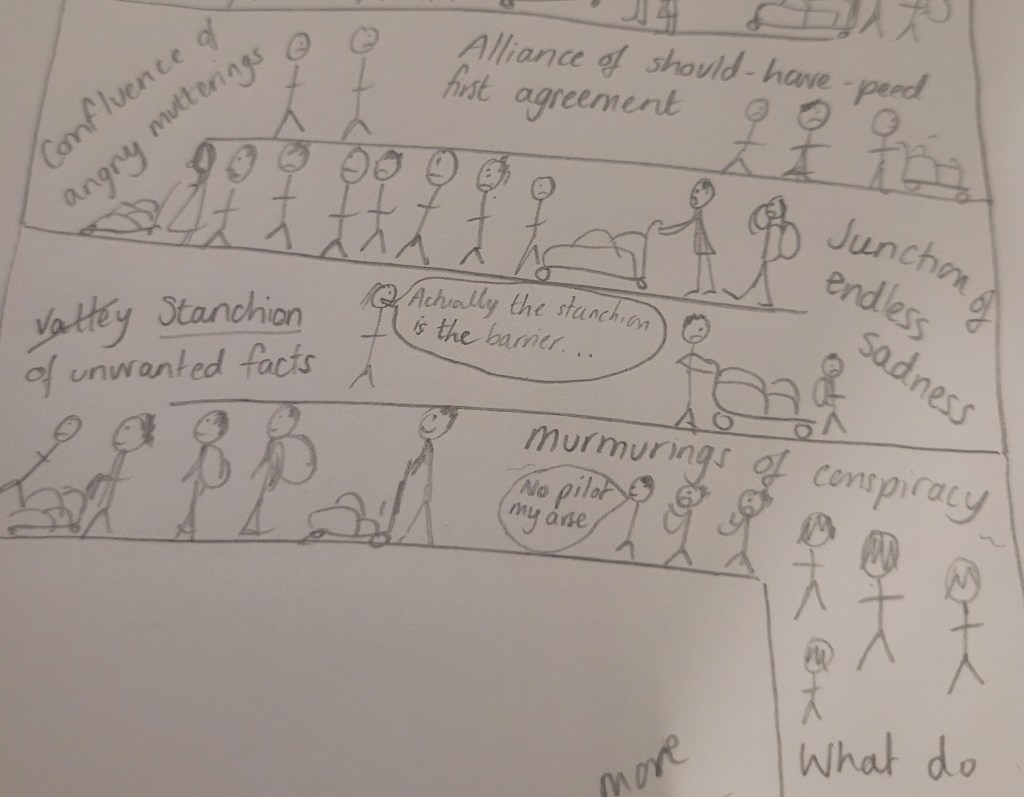 Confluence of
angry mutterings
Alliance of should-have-peed
first agreement
Junction of
endless
sadness
Valley Stanchion
of unwanted facts
Actually the stanchion
is the barrier...
murmurings of conspiracy
No pilot
my arse
What do
more